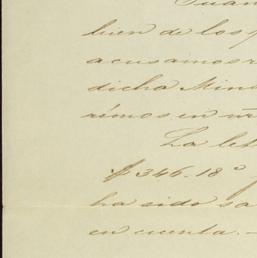 bien de los
acusamos
dicha Min
rimos en
La let
$346.18°
ha sido sa
en cuenta.-